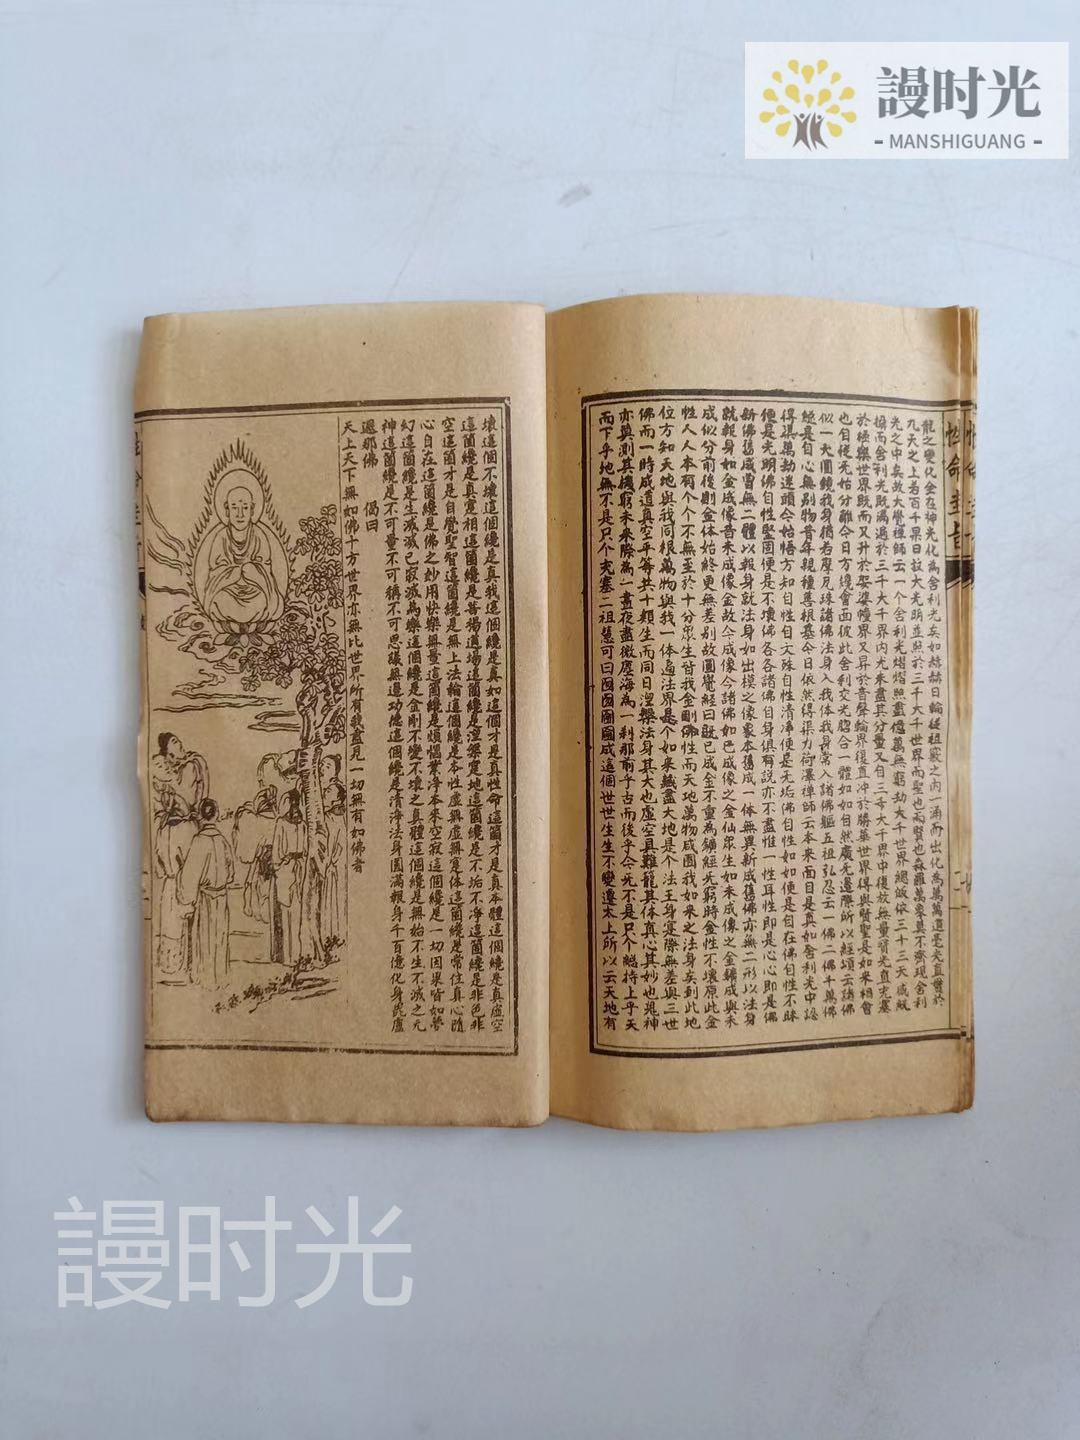 謾时光
- MANSHIGUANG -
性命圭旨
龍之變化全在神光化為舍利光矣如赫赫日輪從祖竅之內一湧而出化為萬萬道毫光直貫於
九天之上若百千杲日放大光明並照於三千大千世界而聖也而賢也森羅萬象莫不齊現舍利
光之中矣故大覺禪師云一個舍利光熠熠照盡億萬無窮劫大千世界總皈依三十三天咸賦
攝而舍利光既滿遍於三千大千界內尤未盡其分量又自三千大千界中復放無量寶光直充塞
於極樂世界既而又升於袈裟幢界又昇於音聲輪界復直沖於勝華世界得與賢聖是如來相會
也自從無始分離今日方纔會面彼此舍利交光脗合一體如如自然廣無邊際所以經頌云諸佛
似一大圓鏡我身猶若摩尼珠諸佛法身入我体我身常入諸佛軀五祖弘忍云一佛二佛千萬佛
總是自心無別物昔年親種善根基今日依然得渠力荷澤禪師云本來面目是真如舍利光中認
得渠萬劫迷頭今始悟方知自性自文殊自性清淨便是無垢佛自性如如便是自在佛自性不昧
便是光明佛自性堅固便是不壞佛各各諸佛自身俱有說亦不盡惟一性耳性即是心心即是佛
新佛舊成曾無二體以報身就法身如出模之像象本舊成一体無異新成舊佛亦無二形以法身
就報身如金成像昔未成像金故今成像今諸佛如已成像之金仙衆生如未成像之金鑛成與未
成似分前後則金体始終更無差別故圓覺經曰既已成金不重為鑛經无窮時金性不壞原此金
性人人本有個个不無至於十分眾生皆我金剛佛性而天地萬物咸囿我如來之法身矣到此地
位方知天地與我同根萬物與我一体遍法界是个如來藏盡大地是个法王身寔際無差與三世
佛而一時成道真空平等共十類生而同日涅槃法身其大也虛空且難籠其体真心其妙也鬼神
亦莫測其機窮未來際為一晝夜盡微塵海為一刹那前乎古而後乎今无不是只个總持上乎天
而下乎地無不是只个充塞二祖慧可曰囫囫圇圇成這個世世生生不變遷太上所以云天地有
壞這個不壞這個纔是真我這個纔是真如這個才是真性命這箇才是真本體這個纔是真虛空
這箇纔是真寔相這箇纔是菩提道場這箇纔是涅槃寔地這箇纔是不垢不淨這箇纔是非色非
空這箇才是自覺聖智這箇纔是無上法輪這個纔是本性虛無虛無寔体這箇纔是常住真心隨
心自在這箇纔是佛之妙用快樂無量這箇纔是煩惱業淨本來空寂這個纔是一切因果皆如夢
幻這箇纔是生滅滅已寂滅為樂這個纔是金剛不變不壞之真體這個纔是無始不生不滅之元
神這箇纔是不可量不可稱不可思議無邊功德這個纔是清淨法身圓滿報身千百億化身毘盧
遮那佛
偈曰
天上天下無如佛十方世界亦無比世界所有我盡見一切無有如佛者
謾时光